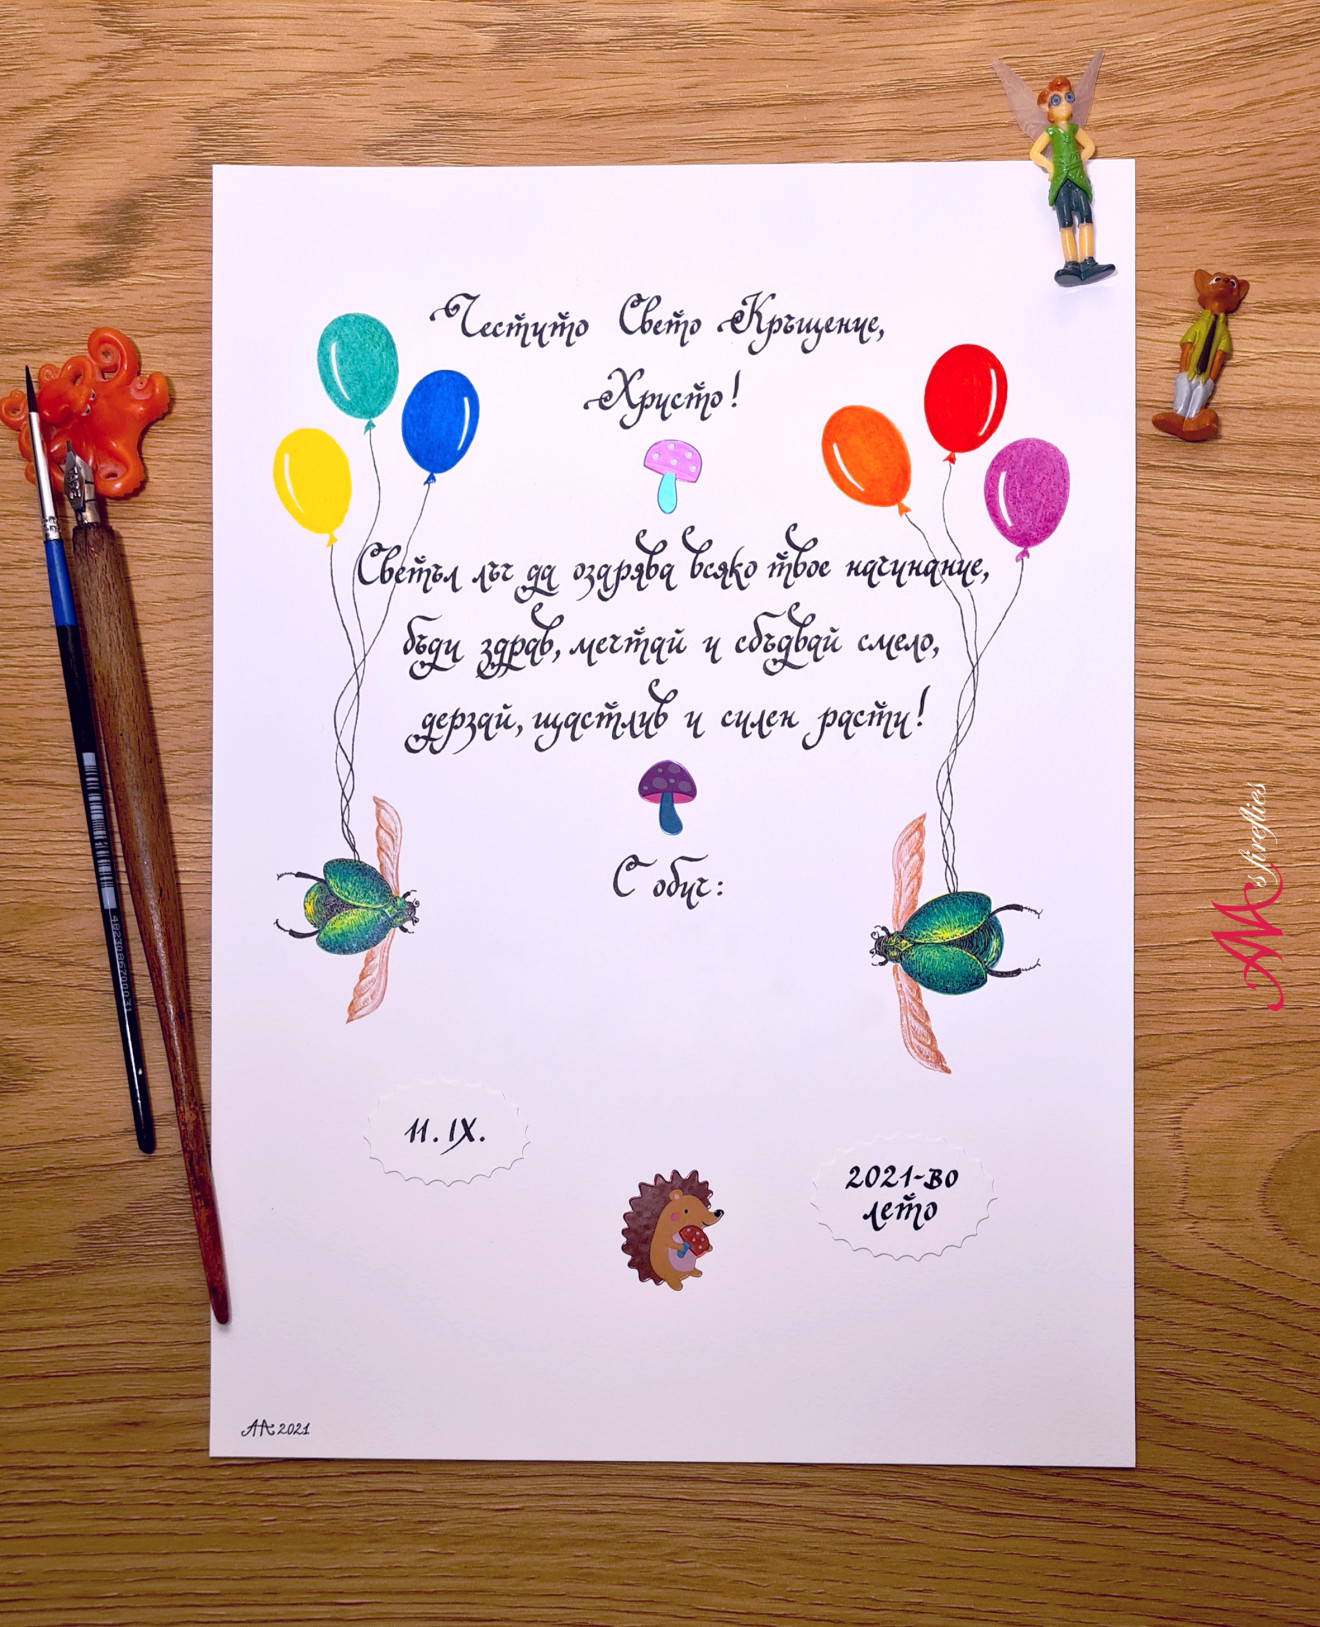 Честито Свето Кръщение,
Христо!
Светъл лъч да озарява всяко твое начинание,
бъди здрав, мечтай и сбъдвай смело,
дерзай, щастлив и силен расти!
С обич:
11. IX.
2021-во
лето
АА 2021
4823086700031
AA's fireflies